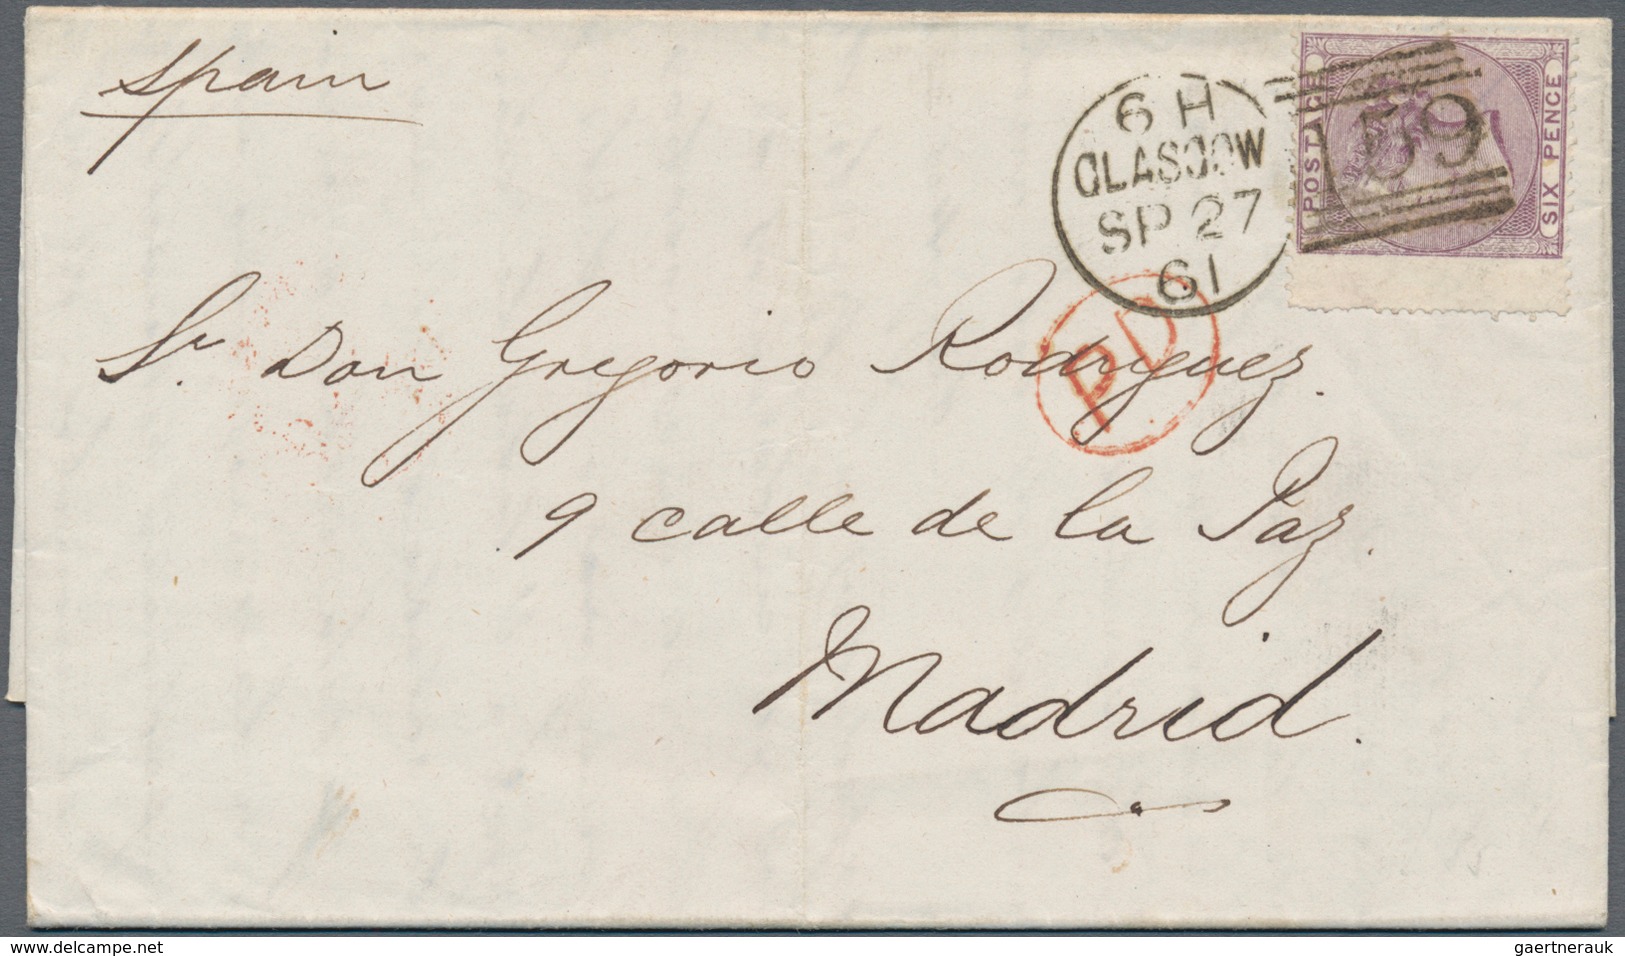 spain
6 H
GLASGOW
SP 27
61
159
POSTAGE
SIX PENCE
PD
Sr. Don Gregorio Rodriguez.
9 calle de la Paz.
Madrid.
www.delcampe.net
gaertnerauk